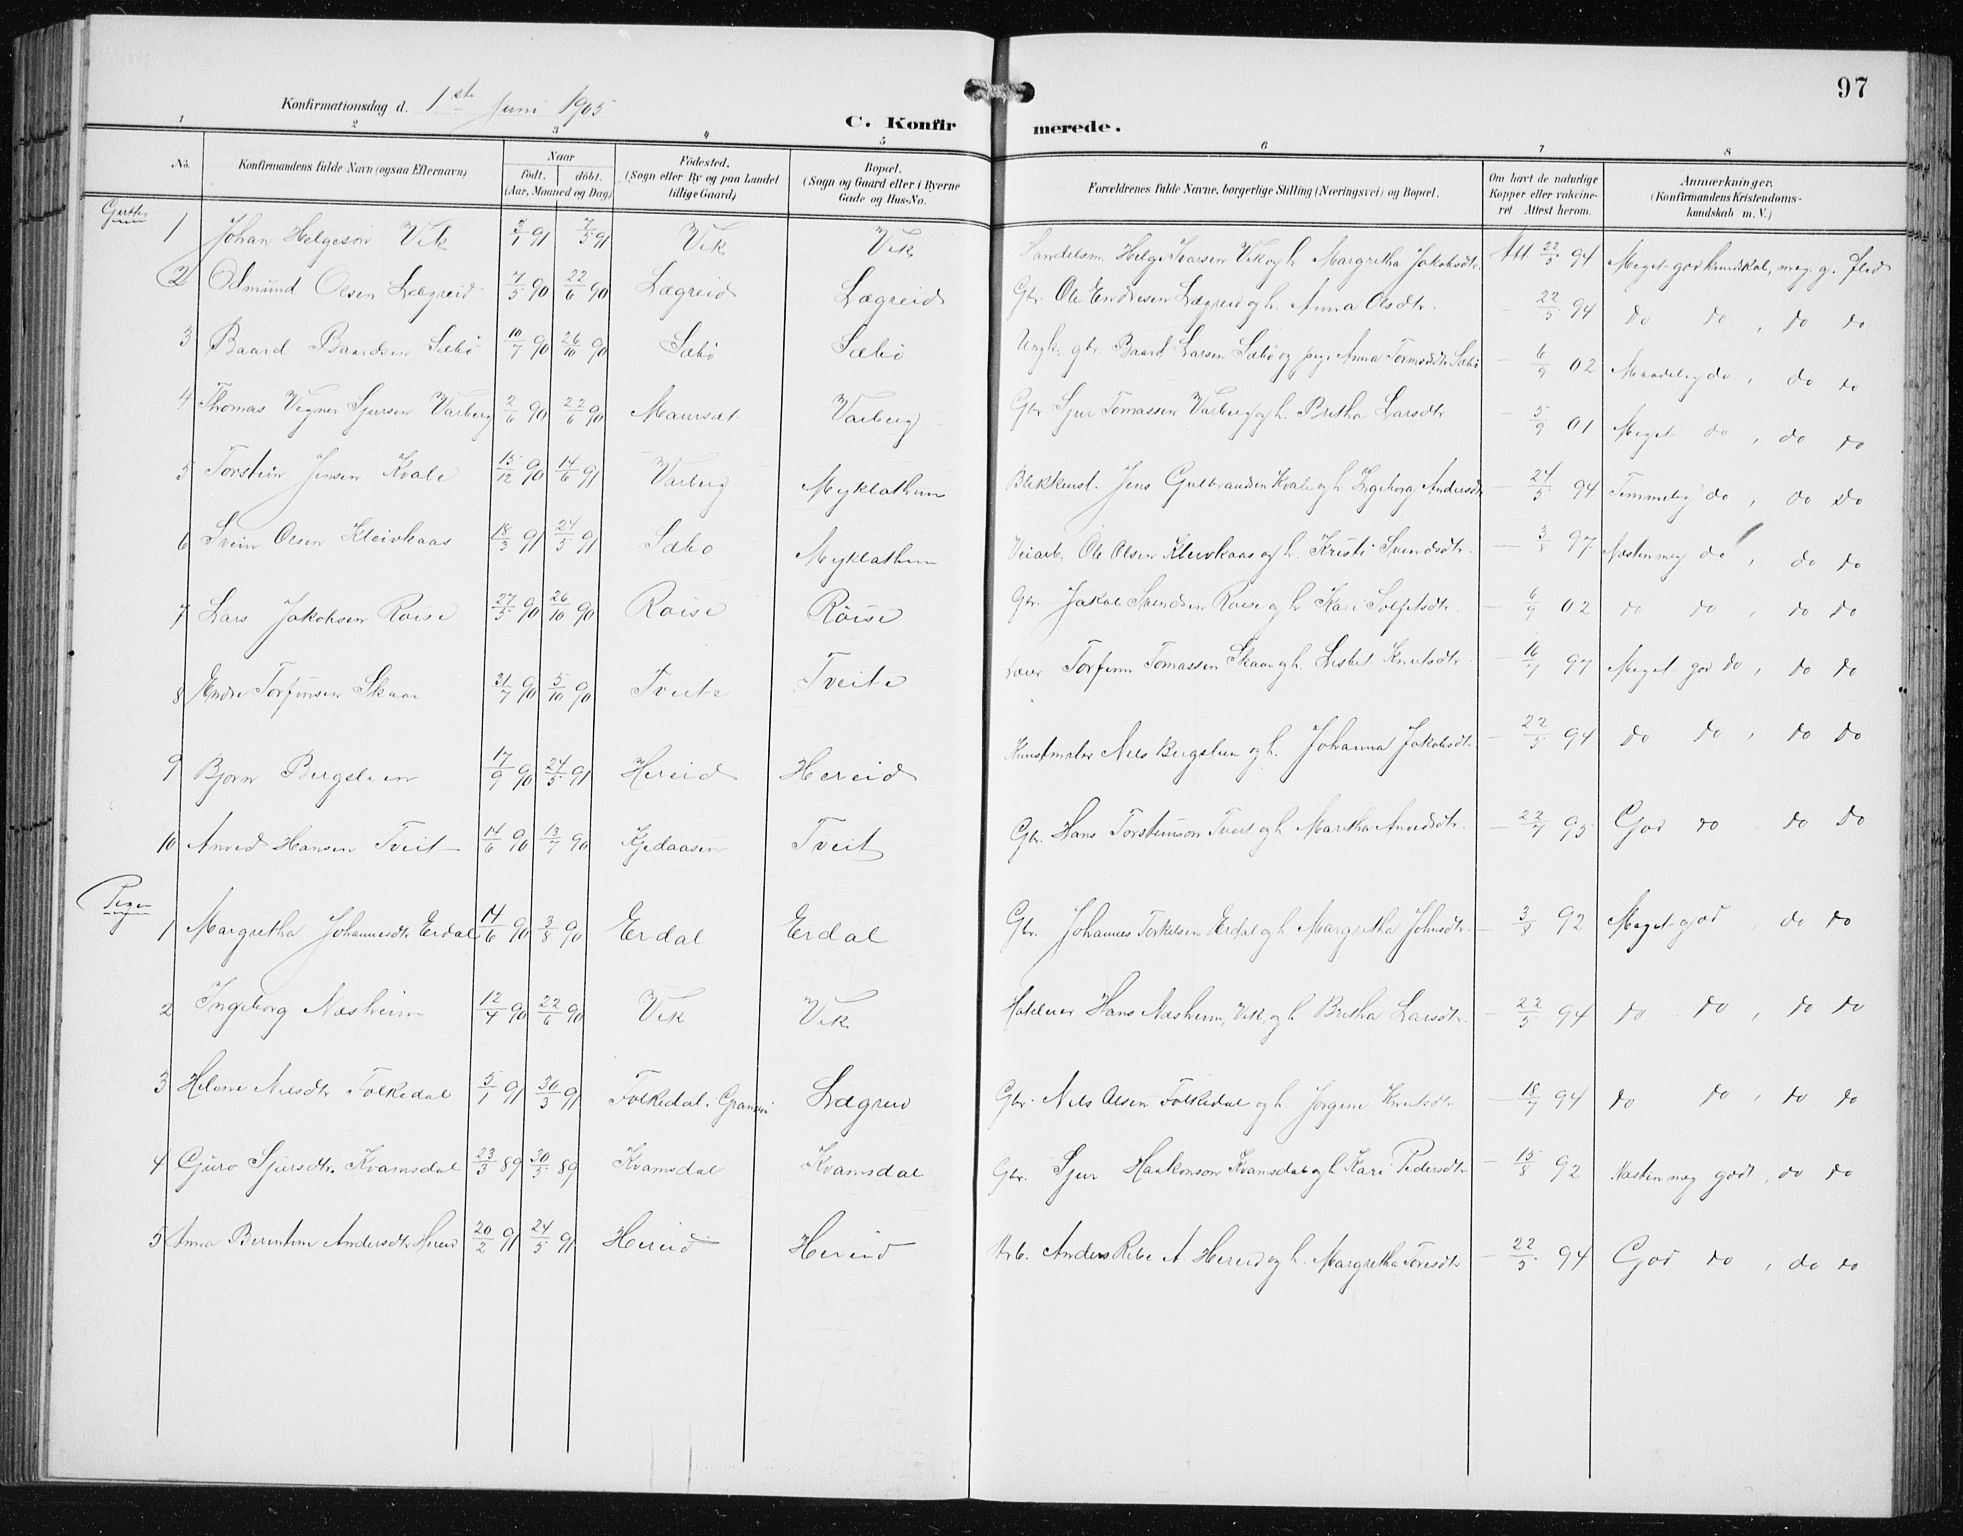 97
Konfirmationsdag d. 1ste Juni 1905
C. Konfirmerede.
1 2 3 4 5 6 7 8
No. Konfirmandens fulde Navn (ogsaa Efternavn) Naar födt. döbt. (Aar, Maaned og Dag) Födested. (Sogn eller By og paa Landet tillige Gaard) Bopæl. (Sogn og Gaard eller i Byerne Gade og Hus-No. Forældrenes fulde Navne, borgerlige Stilling (Næringsvei) og Bopæl. Om havt de naturlige Kopper eller vakcineret. Attest herom. Anmærkninger. (Konfirmandens Kristendomskundskab m. V.)
Gutter
1 Johan Helgeson Vik 3/1 91 7/5 91 Vik Vik Handelsm. Helge Ivarsen Vik og h. Margretha Jakobsdtr. Att. 22/5 94 Meget god kundskab, meg. g. flid
2 Odmund Olsen Lægreid 7/5 90 22/6 90 Lægreid Lægreid Gbr. Ole Endresen Lægreid og h. Anna Olsdtr. - 22/5 94 do do, do do
3 Baard Baardsen Sæbø 10/7 90 26/10 90 Sæbø Sæbø Ungk. gbr. Baard Larsen Sæbø og pige Anna Tormodsdtr Sæbø - 6/9 02 Maadelig do, do do
4 Thomas Vegner Sjursen Varberg 2/6 90 22/6 90 Maursæt Varberg Gbr Sjur Tomassen Varberg og h. Britha Larsdtr - 5/9 01 Meget do, do do
5 Torstein Jensen Kvale 15/12 90 14/6 91 Varberg Myklathun Blikkenst. Jens Gulbrandsen Kvale og h Ingeborg Andersdtr - 24/5 94 Temmelig do, do do
6 Svein Olsen Kleivkaas 18/3 91 24/5 91 Sæbø Myklathun Veiarb. Ole Olsen Kleivkaas og h. Kristi Svendsdtr. - 3/8 97 Næsten meg do, do do
7 Lars Jakobsen Røise 27/5 90 26/10 90 Røise Røise Gbr. Jakob Svendsen Røise og h Kari Solfestsdtr. - 6/9 02 do do, do do
8 Endre Torfinsen Skaar 31/7 90 5/10 90 Tveite Tveite Lærer Torfinn Tomassen Skaar og h. Lisbet Knutsdtr. - 16/7 97 Meget god do, do do
9 Bjørn Bergslien 17/9 90 24/5 91 Hereid Hereid Kunstmaler Nils Bergslien og h. Johanna Jakobsdt. - 22/5 94 do do, do do
10 Anved Hansen Tveit 14/6 90 13/7 90 Kjedaasen Tveit Gbr. Hans Torsteinson Tveit og h Maritha Anvedsdtr. - 22/7 95 God do do do
Piger
1 Margretha Johannesdtr Erdal 14/6 90 3/8 90 Erdal Erdal Gbr. Johannes Torkelsen Erdal og h. Margretha Johnsdtr. - 3/8 92 Meget god, do do
2 Ingeborg Næsheim 12/4 90 22/6 90 Vik Vik Hoteleier Hans Næsheim, Vik, og h Britha Larsdtr. - 22/5 94 do do, do do
3 Helene Nilsdtr Folkedal 5/1 91 30/3 91 Folkedal, Granvin Lægreid Gbr. Nils Olsen Folkedal og h. Jørgine Knutsdtr - 18/7 94 do do, do do
4 Guro Sjursdtr. Kvamsdal 23/3 89 30/5 89 Kvamsdal Kvamsdal Gbr. Sjur Haakonson Kvamsdal og h Kari Pedersdtr - 15/8 92 Næsten meg godt, do do
5 Anna Berentine Andersdtr Hereid 20/2 91 24/5 91 Hereid Hereid Arb. Anders Ribe A. Hereid og h. Margretha Toresdtr - 22/5 94 God do, do do